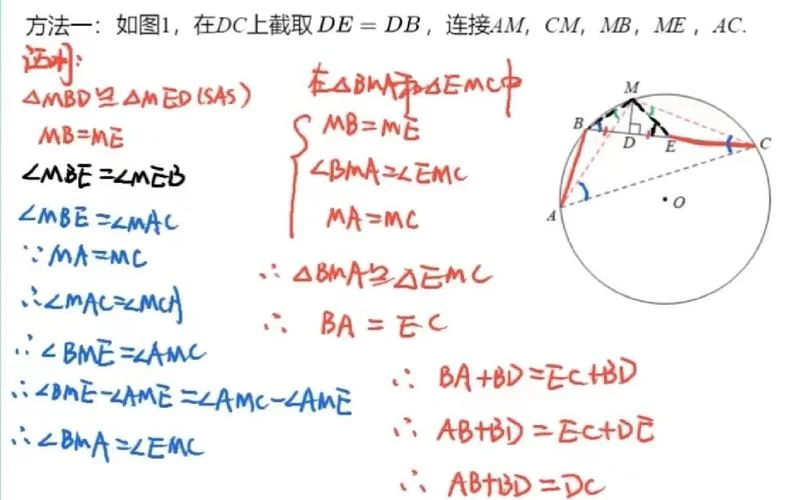 方法一：如图1，在DC上截取DE＝DB，连接AM，CM，MB，ME，AC.
证明:
△MBD≌△MED(SAS)
MB=ME
∠MBE=∠MEB
∠MBE=∠MAC
∵MA=MC
∴∠MAC=∠MCA
∴∠BME=∠AMC
∴∠BME-∠AME=∠AMC-∠AME
∴∠BMA=∠EMC
在△BMA和△EMC中
MB=ME
∠BMA=∠EMC
MA=MC
∴△BMA≌△EMC
∴ BA=EC
∴ BA+BD=EC+BD
∴ AB+BD=EC+DE
∴ AB+BD=DC
M
B
D
E
C
A
O